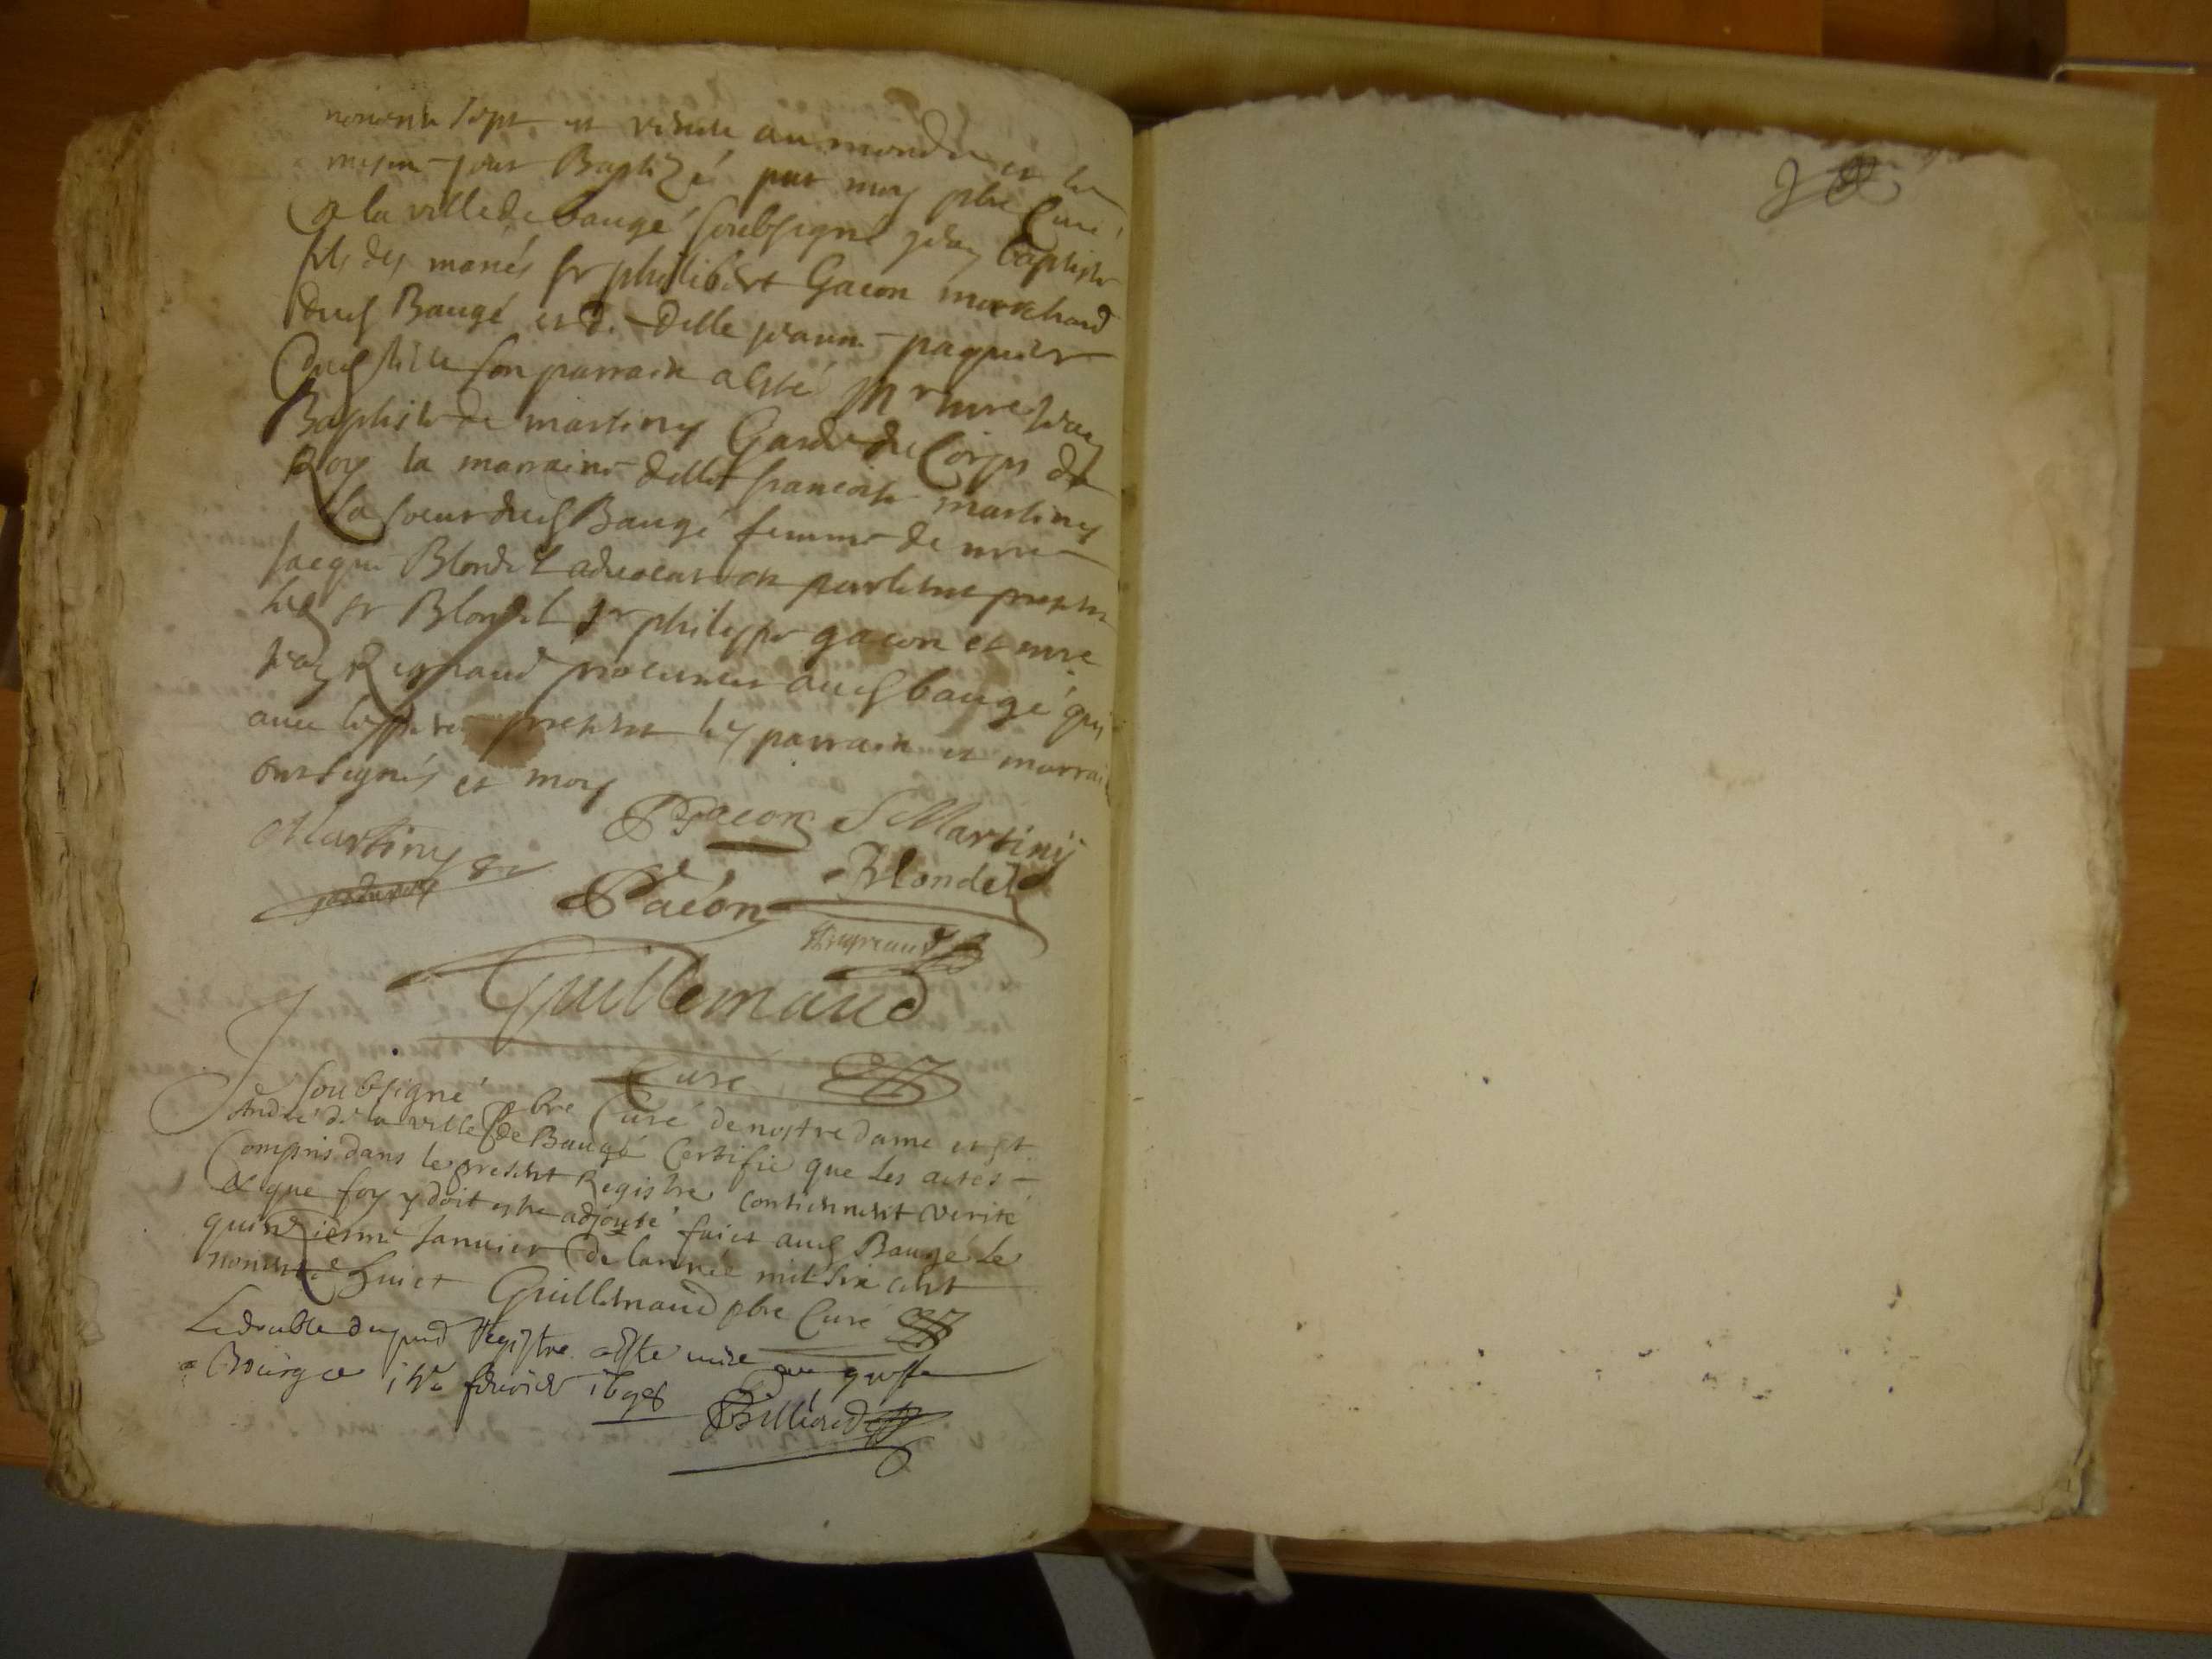 nonente sept est venue au monde et le
mesme jour Baptizé par moy pbre Curé
de la ville de baugé soubsigné jean baptiste
fils des mariés sr philibert Gacon marchand
dud Baugé et de delle jeanne paquier
son parrain a esté Mre jean
Baptiste de martiny Garde du Corps du
Roy la marraine delle francoise martiny
sa soeur dud Baugé femme de mre
Jacque Blondel advocat en parlement presents
led sr Blondel sr philippe gacon et mre
jean Reynaud procureur aud baugé qui
avec le pere present les parrain et marraine
ont signés et moy
Gacon Martiny
Martiny
Blondel
Gacon
Reynaud
Guillemaud
Curé
Je soubsigné pbre Curé de nostre dame et st
André de la ville de Baugé Certifie que les actes
Compris dans le present Registre contiennent verité
& que foy y doit estre adjouté fait aud Baugé le
quinzieme Janvier de lannée mil six cent
nonente huict Guillemaud pbre Curé
Le double du pnt Registre a esté mise au greffe
a Bourg ce fevrier 1698
Billiard